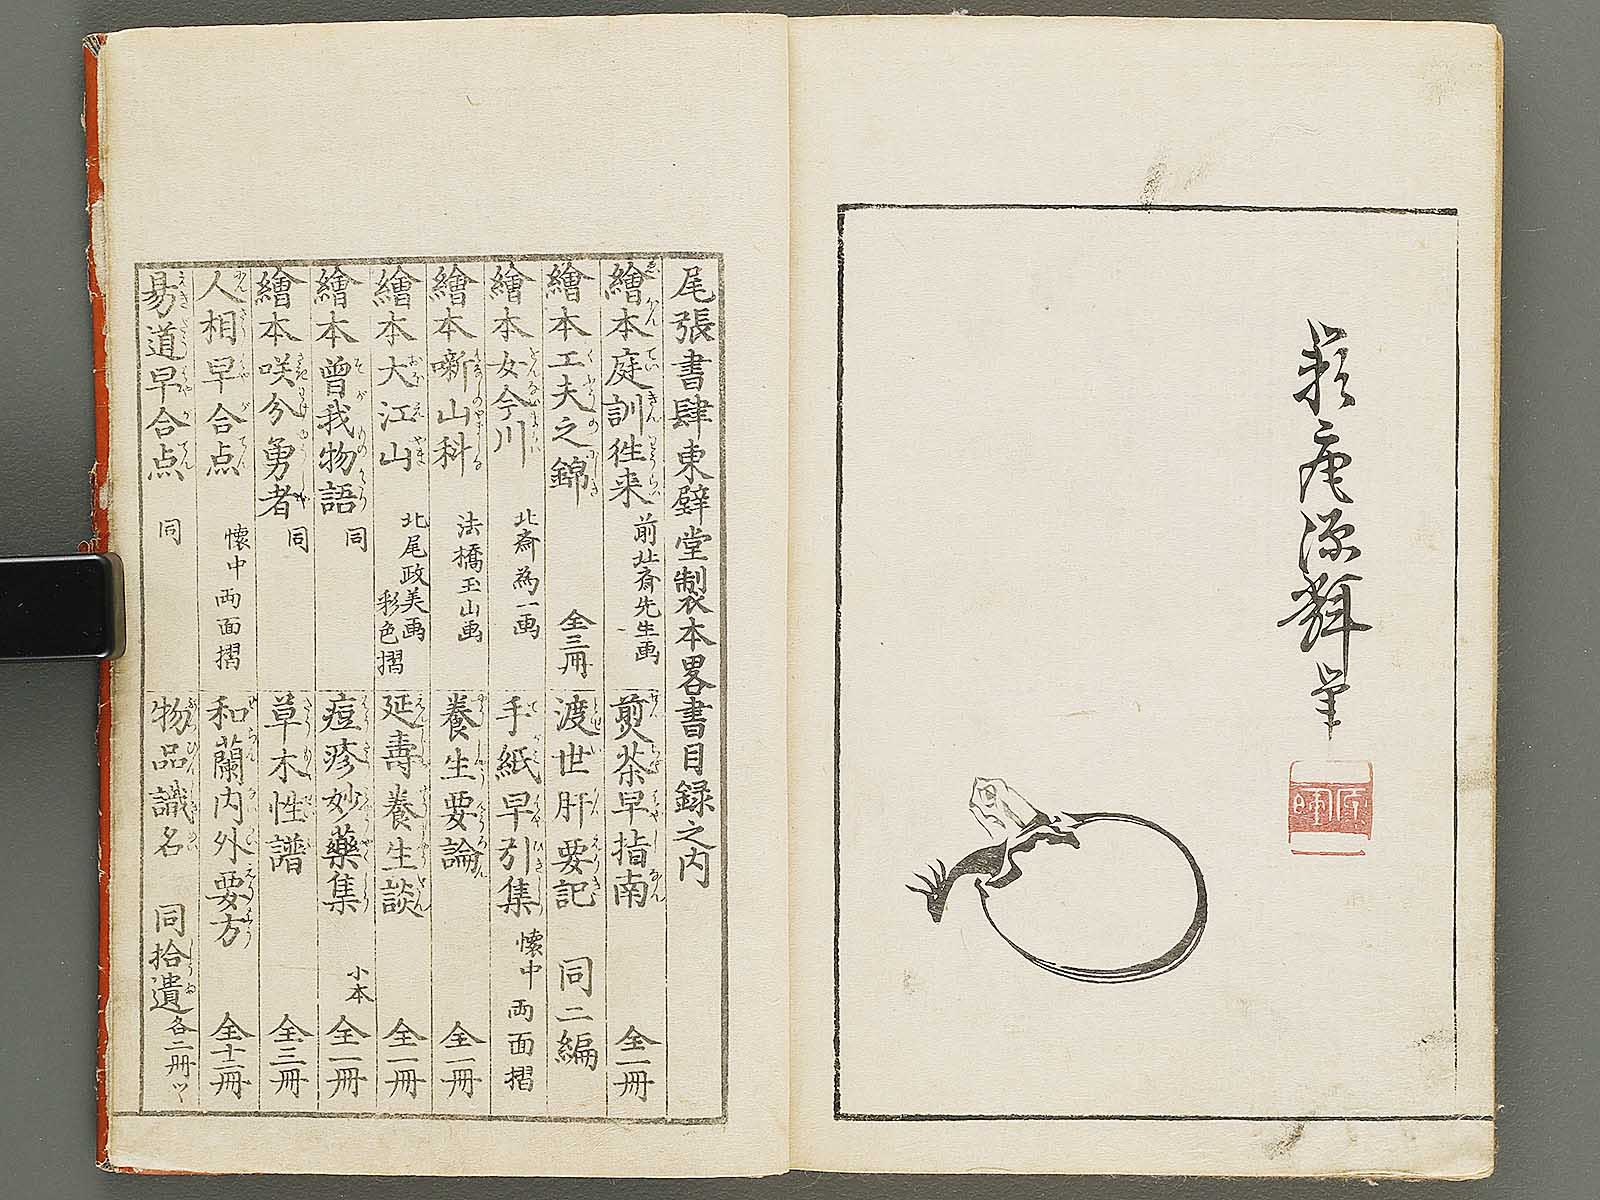 源輝筆
尾張書肆東壁堂製本畧書目録之内
繪本庭訓徃来 前北斎先生画
繪本工夫之錦 全三冊
繪本女今川 北斎為一画
繪本噺山科 法橋玉山画
繪本大江山 北尾政美画 彩色摺
繪本曽我物語 同
繪本咲分勇者 同
人相早合点 懐中両面摺
易道早合点 同
煎茶早指南 全一冊
渡世肝要記 同二編
手紙早引集 懐中両面摺
養生要論 全一冊
延壽養生談 全一冊
痘疹妙藥集 小本 全一冊
草木性譜 全三冊
和蘭内外要方 全十二冊
物品識名 同拾遺 各二冊ツヽ